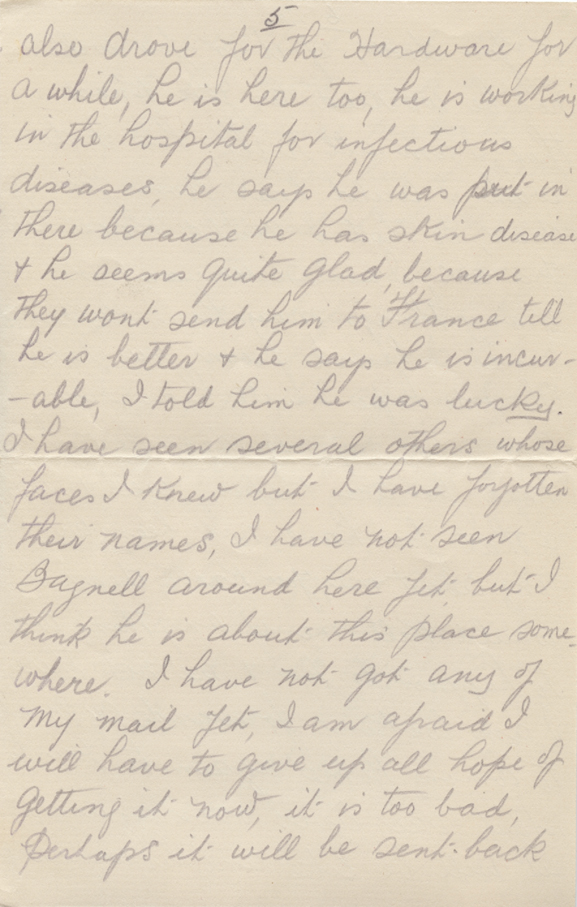 5
also drove for the Hardware for
a while, he is here too, he is working
in the hospital for infectious
diseases, he says he was put in
there because he has skin disease
& he seems quite glad, because
they wont send him to France till
he is better & he says he is incur-
-able, I told him he was lucky.
I have seen several others whose
faces I knew but I have forgotten
their names, I have not seen
Bagnell around here yet but I
think he is about this place some-
where. I have not got any of
my mail yet, I am afraid I
will have to give up all hope of
getting it now, it is too bad,
Perhaps it will be sent back